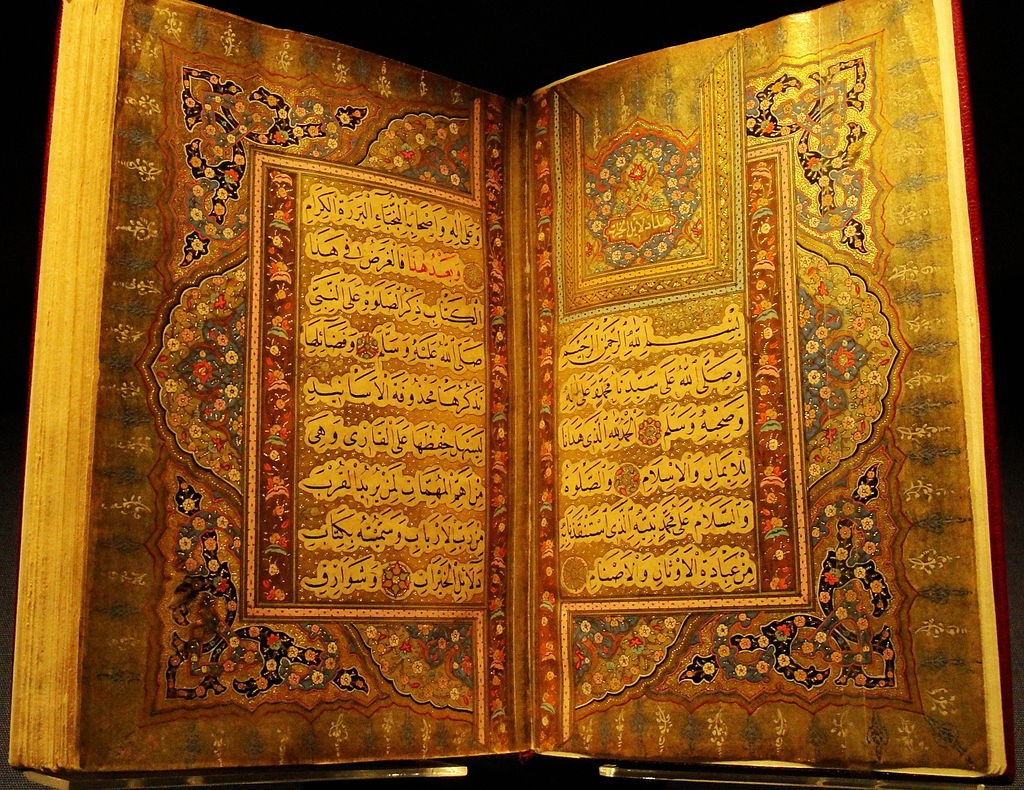 هذا دلائل الخيرات
بِسْمِ اللهِ الرَّحْمٰنِ الرَّحِيمِ
وَصَلَّى اللهُ عَلَى سَيِّدِنَا مُحَمَّدٍ وَعَلَى آلِهِ
وَصَحْبِهِ وَسَلَّمَ اَلْحَمْدُ لِلّٰهِ الَّذِي هَدَانَا
لِلْإِيمَانِ وَالْإِسْلَامِ وَالصَّلٰوةُ
وَالسَّلَامُ عَلَى مُحَمَّدٍ نَبِيِّهِ الَّذِي اسْتَنْقَذَنَا بِهِ
مِنْ عِبَادَةِ الْأَوْثَانِ وَالْأَصْنَامِ
وَعَلَى آلِهِ وَأَصْحَابِهِ النُّجَبَاءِ الْبَرَرَةِ الْكِرَامِ
وَبَعْدَ هٰذَا فَالْغَرَضُ فِي هٰذَا
الْكِتَابِ ذِكْرُ الصَّلٰوةِ عَلَى النَّبِيِّ
صَلَّى اللهُ عَلَيْهِ وَسَلَّمَ وَفَضَائِلِهَا
نَذْكُرُهَا مَحْذُوفَةَ الْأَسَانِيدِ
لِيَسْهُلَ حِفْظُهَا عَلَى الْقَارِئِ وَهِيَ
مِنْ أَهَمِّ الْمُهِمَّاتِ لِمَنْ يُرِيدُ الْقُرْبَ
مِنْ رَبِّ الْأَرْبَابِ وَسَمَّيْتُهُ بِكِتَابِ
دَلَائِلِ الْخَيْرَاتِ وَشَوَارِقِ